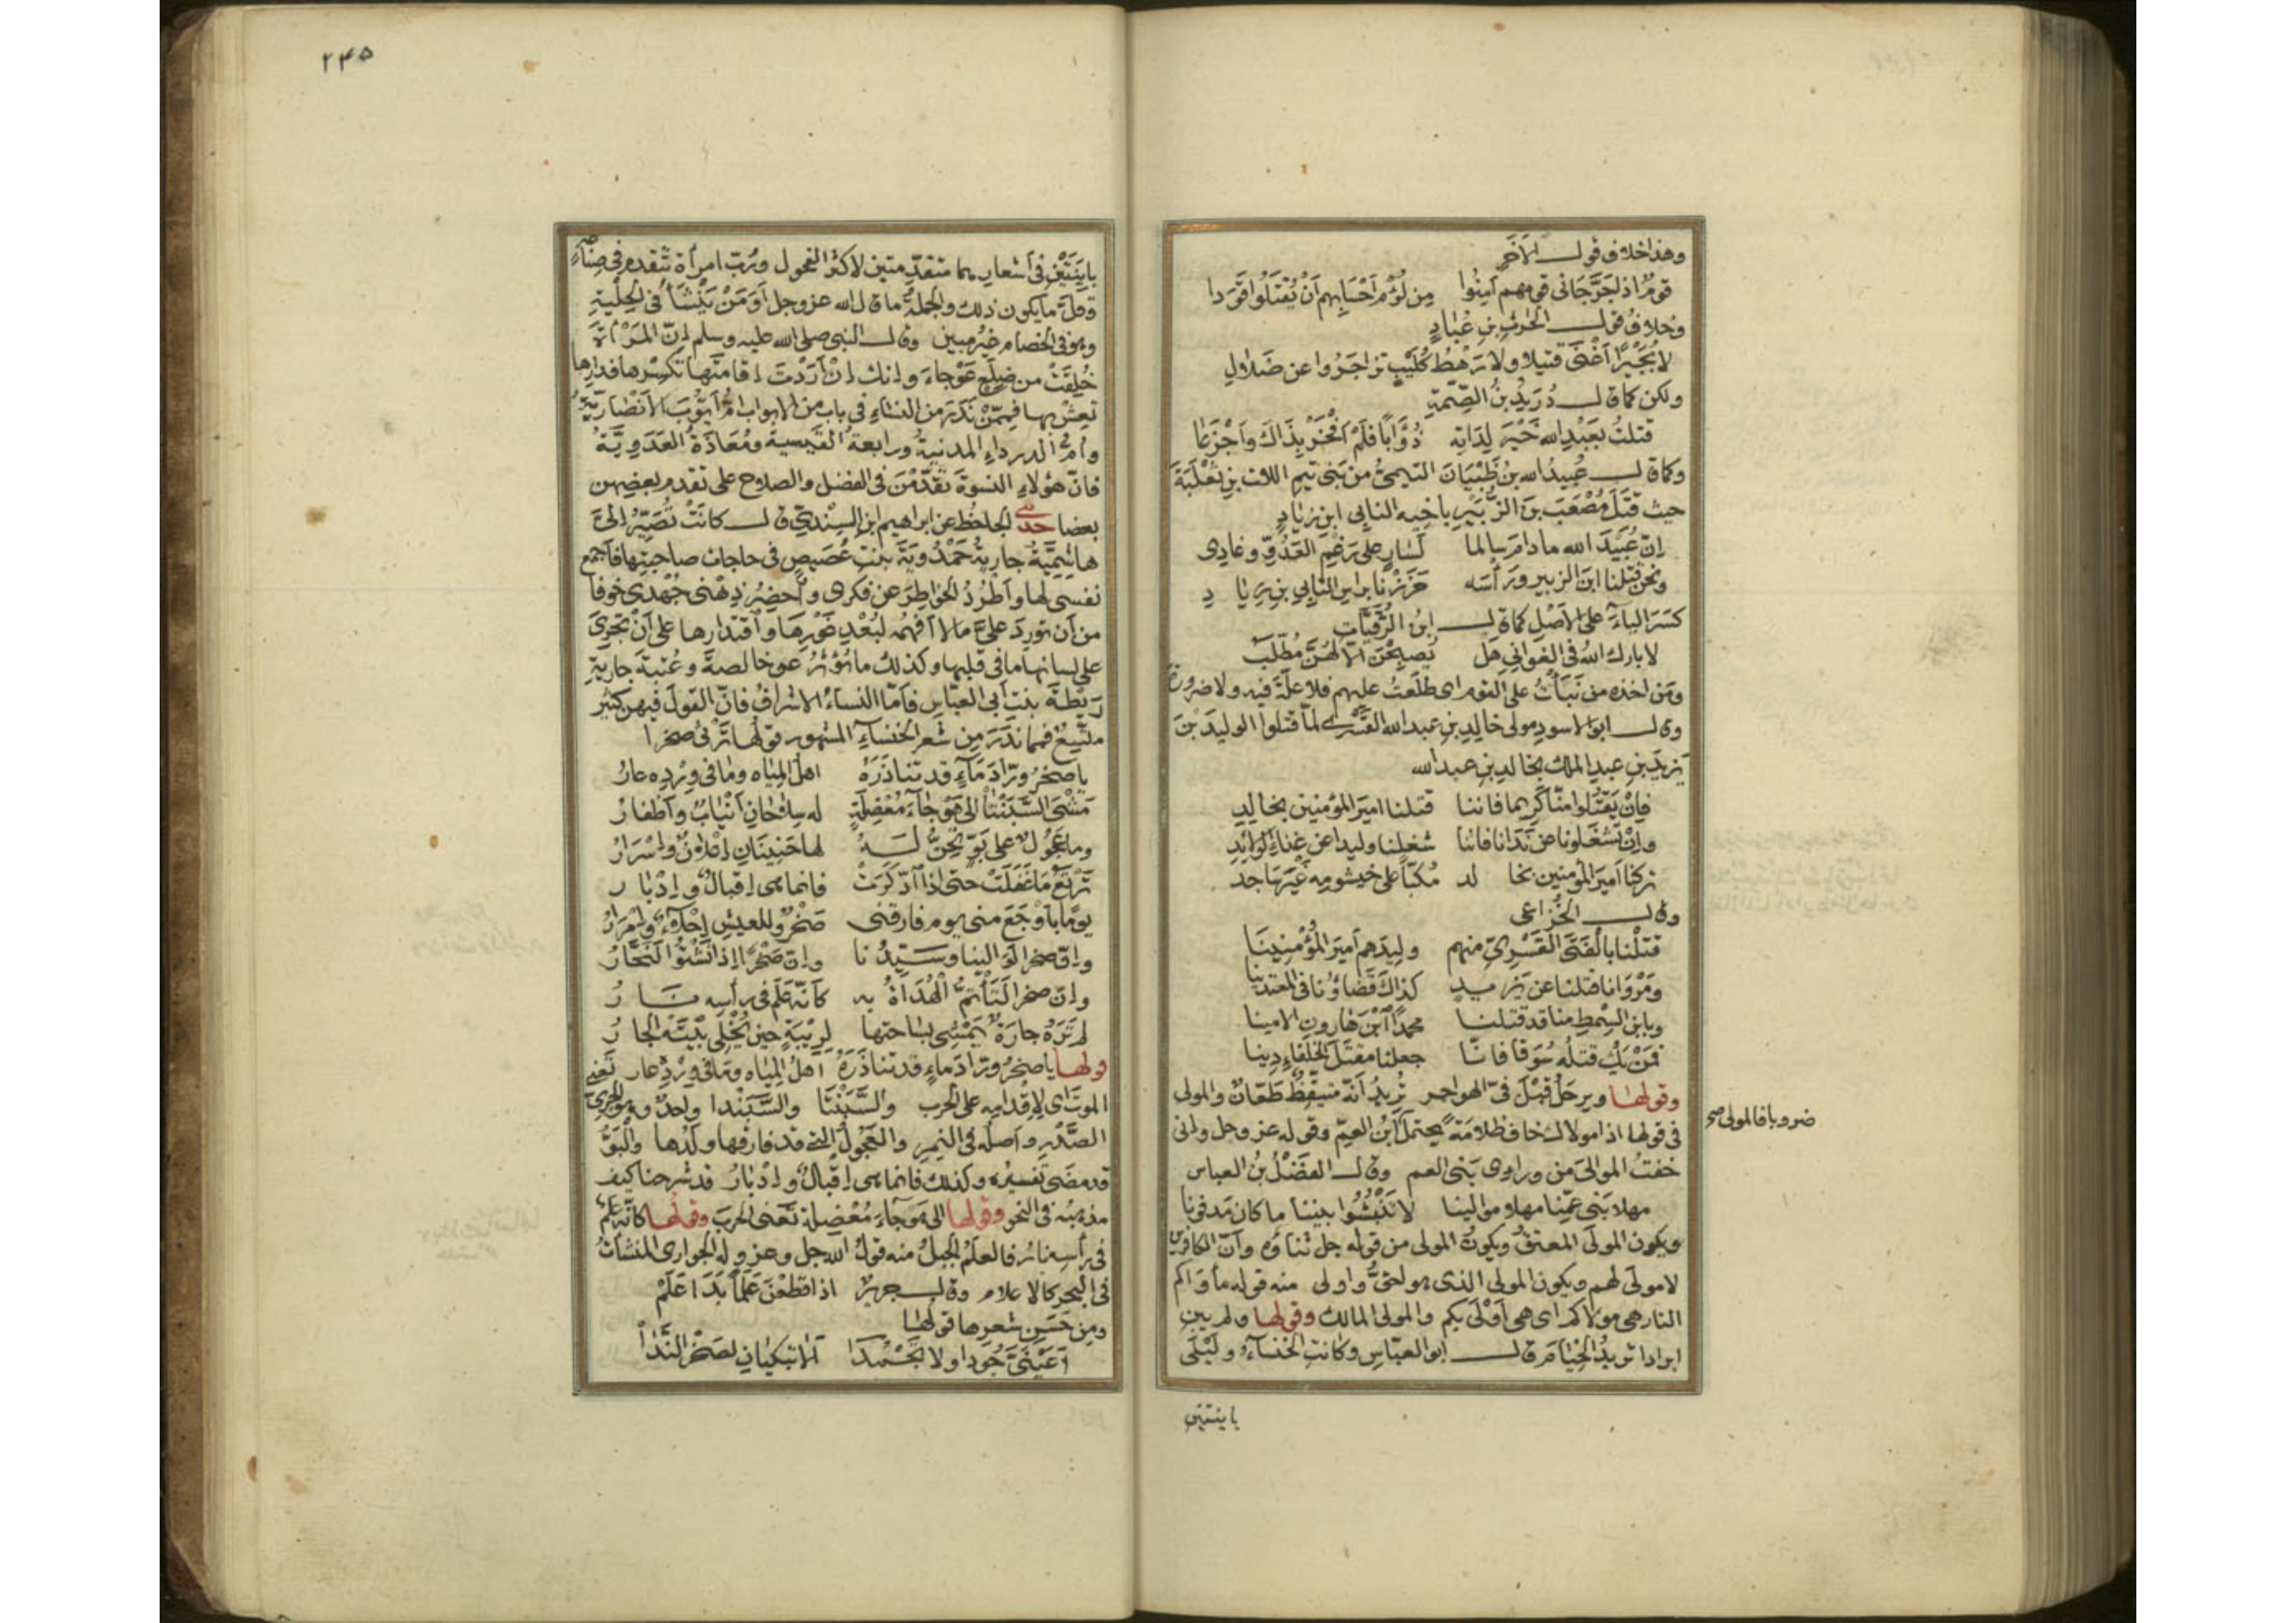 وهذا خلاف قول الآخر
قومٌ اذا جَرَّ جانى قومهم أَمِنُوا من لُؤْمِ أَحْسَابِهم أَنْ يُقْتَلُوا قَوَدا
وخلافُ قول الحٰرثِ بنِ عُبَادٍ
لا بُجَيْرًا أَغْنَى قتيلا ولا رَهْطُ كُلَيْبٍ تزاجَرُوا عن ضَلالِ
ولكن كما قال دُرَيْدُ بنُ الصِّمَّةِ
قتلتُ بعَبْدِ الله خَيْرَ لِدَاتِه ذُؤَابًا فلَمْ أَفْخَرْ بِذَاكَ وأَجْزَعَا
وكما قال عُبيدُ الله بنُ ظَبْيَانَ التيمىُّ من بَنى تيمِ اللات بنِ ثَعْلَبَةَ
حيث قَتَلَ مُصْعَبَ بنَ الزُّبَيْرِ باخيه النابى ابنِ زيادٍ
إنّ عُبَيْدَ الله ما دامَ سالما لَسَارٍ على رَغْمِ العَدُوِّ وغادِى
ونحن قتلنا ابنَ الزبير ورَأْسَه حَزَزْنَا براسِ النَّابِي بنِ زِيادِ
كسَرَ الياءَ على الأَصْلِ كما قال ابنُ الرُّقَيَّاتِ
لا بارك اللهُ فى الغوانى هَل يُصبِحْنَ الّا لهُنَّ مُطَّلَبُ
ومَن اخذه من نَبَأْتُ على القوم اى طلَعتُ عليهم فلا علّةَ فيه ولا ضرورة
وقال ابو الاسودِ مولى خالدِ بنِ عبدالله القَسْرِىّ لمّا قتلوا الوليدَ بْنَ
يَزيدَ بنِ عبدِ الملك بخالدِ بنِ عبدالله
فإنْ يَقْتُلوا منّا كَرِيما فاننا قتلنا اميرَ المؤمنين بخالدِ
وإنْ تَشغلونا عن نَدَانا فاننا شغلنا وليدا عن غِناءِ الولائدِ
تركنا أميرَ المؤمنين بخا لد مُكِبّاً على خيشومه غَيْرَ ساجد
وقال الخُزاعى
قتلْنا بالْفَتَى القَسْرِىّ منهم وليدَهم أميرَ المُؤْمِنِينَا
ومَرْوَانا قتلنا عن يَزيدٍ كذاك قَضاؤنا فى المعتدينا
وبابن السِّمْطِ منا قد قتلنا محمداً ابْنَ هارونِ الامينا
فمَنْ يَكُ قتلُه سُوَقا فانّا جعلنا مقتلَ الخلفاءِ دِينا
وقولها ويرحَلُ قبْلَ فىّ الهواجر تُريدُ أَنّه متيقِّظٌ ظَعّانٌ والمولى
فى قولها اذا مولاك خاف ظلامةً يحتمل ابْنَ العمّ وقوله عز وجل وانى
ضروبا فالمولى صح
خفتُ الموالىَ من وراءى بَنى العم وقال الفَضْلُ بْنُ العباس
مهلا بَنى عمِّنا مهلا موالينا لا تَنْبُشُوا بيننا ما كان مَدفونا
ويكون المولَى المعتقَ ويكونُ المولى من قوله جل ثناؤه وأنّ الكافرين
لا مولَى لهم ويكون المولى الذى هو احقُّ واولى منه قوله مأواكم
النار هى مولاكم اى هى أَوْلَى بكم والمولى المالك وقولها ولم يبن
ابرادا تريدُ الخيامَ قال ابو العبّاسِ وكانتِ الخنساءُ ولَيْلَى
باينتين
٢٤٥
بايِنَتَيْنِ فى أشعارهما متقدِّمتين لاكثر الفحول ورُبّ امرأة تتقدم فى صِناعةٍ
وقلّ ما يكون ذلك والجملةُ ما قال الله عز وجل أَوَمَنْ يَنْشَأُ فى الحِلْيَةِ
وهو فى الخصام غيرُ مبين وقال النبى صلى الله عليه وسلم إنّ المَرْأَةَ
خُلِقَتْ من ضِلَعٍ عَوْجاءَ وانك إنْ أَرَدْتَ إقامتَها تكسِرْها فدارِها
تعِشْ بها فممّنْ نَدَرَ من النساءِ فى باب من الابواب امُّ أَيّوبَ الأنصاريّةُ
وأمُّ الدرداءِ المدنيةُ ورابعةُ القيسيةُ ومُعَاذَةُ العَدَويّةُ
فانّ هؤلاءِ النسوةَ تقَدّمْنَ فى الفضل والصلاح على تقدم بعضِهن
بعضا حدثنى الجاحظ عن ابراهيم ابن السِّنْدِىّ قال كانَتْ تَصِيرُ إلىّ
هاشِمِيّةُ جاريةُ حَمْدُويَةَ بنتِ غُضَيْضٍ فى حاجات صاحبتِها فأَجمع
نفسى لها وأطْرُدُ الخواطِرَ عن فكرى وأُحضِرُ ذِهْنى جُهْدى خوفا
من أن تورِدَ علىّ ما لا أفهمُه لبُعْدِ غَوْرِها واقتدارِها على أنْ تُجْرِىَ
على لسانها ما فى قلبها وكذلك ما يُؤْثَرُ عن خالصةَ وعُتبةَ جاريةِ
رَيْطةَ بنتِ أبى العبّاسِ فأمّا النساءُ الاشرافُ فانّ القولَ فيهن كثير
متّسِعٌ فمما نَدَرَ من شعر الخنساءِ المشهور قولُها تَرْثى صخرا
يا صخرُ ورّادَ مَاءٍ قد تناذَرَهُ اهلُ المِياه وما فى وِرْدِه عارُ
مَشْىَ السَّبَنْتَا إلى هَوْجَاءَ مُعْضِلَةٍ له سِلاحَانِ أَنْيابٌ وأظفارُ
وما عَجُولٌ على بَوٍّ تَحِنُّ لَهُ لها حَنِينَانِ إعْلانٌ وإسْرَارُ
تَرْتَعُ مَا غَفَلَتْ حتى اذا ادّكَرَتْ فانما هى إقبالٌ وإدْبارُ
يومًا بأَوْجَعَ منى يوم فارقنى صَخْرٌ وللعيشِ إحْلاءٌ وإمْرَارُ
وإنّ صخرا لَوَالينا وسَيّدُنا وإنّ صَخْرًا إذا نَشْتُو لَنَحَّارُ
وإنّ صخرا لَتَأْتَمُّ الْهُدَاةُ بِهِ كَأنّه عَلَمٌ فى رأسِه نَارُ
لم تَرَهُ جارَةٌ يَمْشِى بسَاحتها لِرِيبَةٍ حين يُخْلِى بَيْتَهُ الجارُ
قولها يا صخرُ ورّادَ ماءٍ قد تناذَرَهُ أهلُ المِياه وما فى وِرْدِه عار تَعْنى
الموتَ اى لإقدامِه على الحرب والسَّبَنْتَا والسَّبَنْدا واحدٌ وهو الجرىءُ
الصَّدْرِ وأصلُه فى النمِر والعَجُولُ التى قد فارقها ولَدُها والْبَوُّ
قد مضَى تفسيرُه وكذلك فانما هى إقبالٌ وإدْبارُ قد شرحنا كيف
مذهبُه فى النحو وقولها الى هَوْجَاءَ مُعْضِلةٍ تعنى الحربَ وقولها كأنّه عَلَمٌ
فى رأسِه نارُ فالعلَمُ الجبلُ منه قولُ الله جل وعز وله الجوارى المنشآتُ
فى البحر كالاعلام وقال جريرٌ اذا قطعْنَ عَلَمًا بَدَا عَلَمْ
ومِن حَسَنِ شعرِها قولها
أَعَيْنَىَّ جُودا ولا تَجْمُدَا ألا تبكيانِ لصَخْرِ النَّدَا